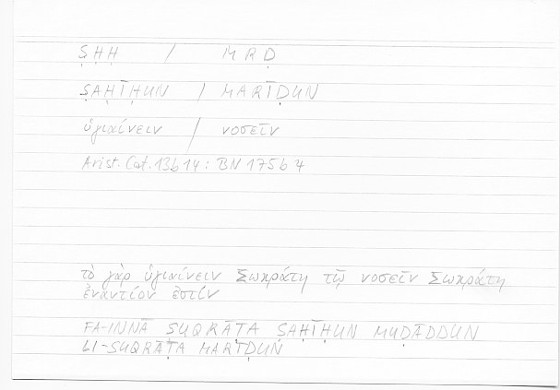 ṢḤḤ / MRḌ
ṢAḤĪḤUN / MARĪḌUN
ὑγιαίνειν / νοσεῖν
Arist. Cat. 13b14 : BN 175b4
τὸ γὰρ ὑγιαίνειν Σωκράτη τῷ νοσεῖν Σωκράτη
ἐναντίον ἐστίν
FA-INNĀ SUQRĀṬA ṢAḤĪḤUN MUḌĀDDUN
LI-SUQRĀṬA MARĪḌUN